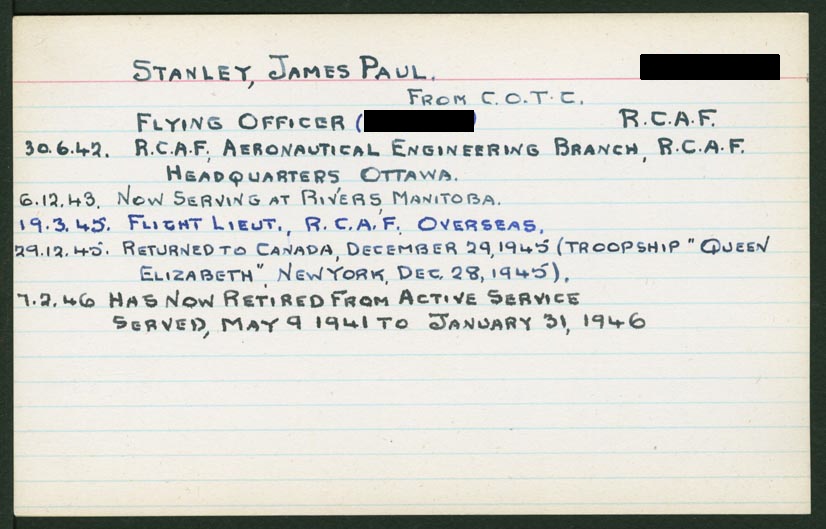 STANLEY, JAMES PAUL.
FROM C.O.T.C.
FLYING OFFICER ( ) R.C.A.F.
30.6.42. R.C.A.F. AERONAUTICAL ENGINEERING BRANCH, R.C.A.F.
HEADQUARTERS OTTAWA.
6.12.43. NOW SERVING AT RIVERS, MANITOBA.
19.3.45. FLIGHT LIEUT., R.C.A.F. OVERSEAS.
29.12.45. RETURNED TO CANADA, DECEMBER 29, 1945 (TROOPSHIP "QUEEN
ELIZABETH", NEW YORK, DEC. 28, 1945).
7.2.46 HAS NOW RETIRED FROM ACTIVE SERVICE
SERVED, MAY 9 1941 TO JANUARY 31, 1946